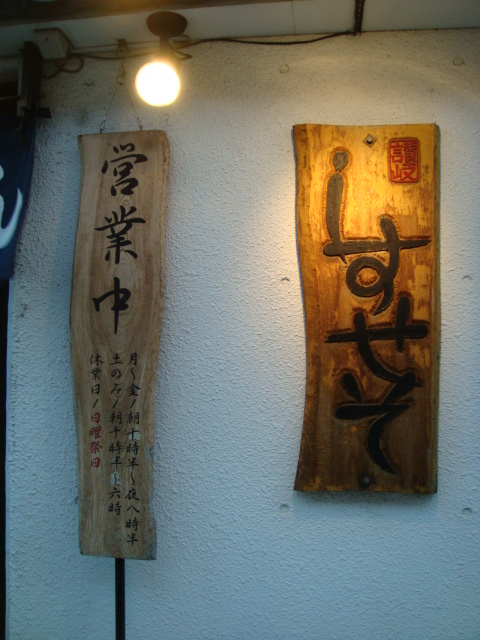 営業中
月〜金/朝十時半〜夜八時半
土のみ/朝十時半〜六時
休業日/日曜祭日
讃岐
しすせそ
ん